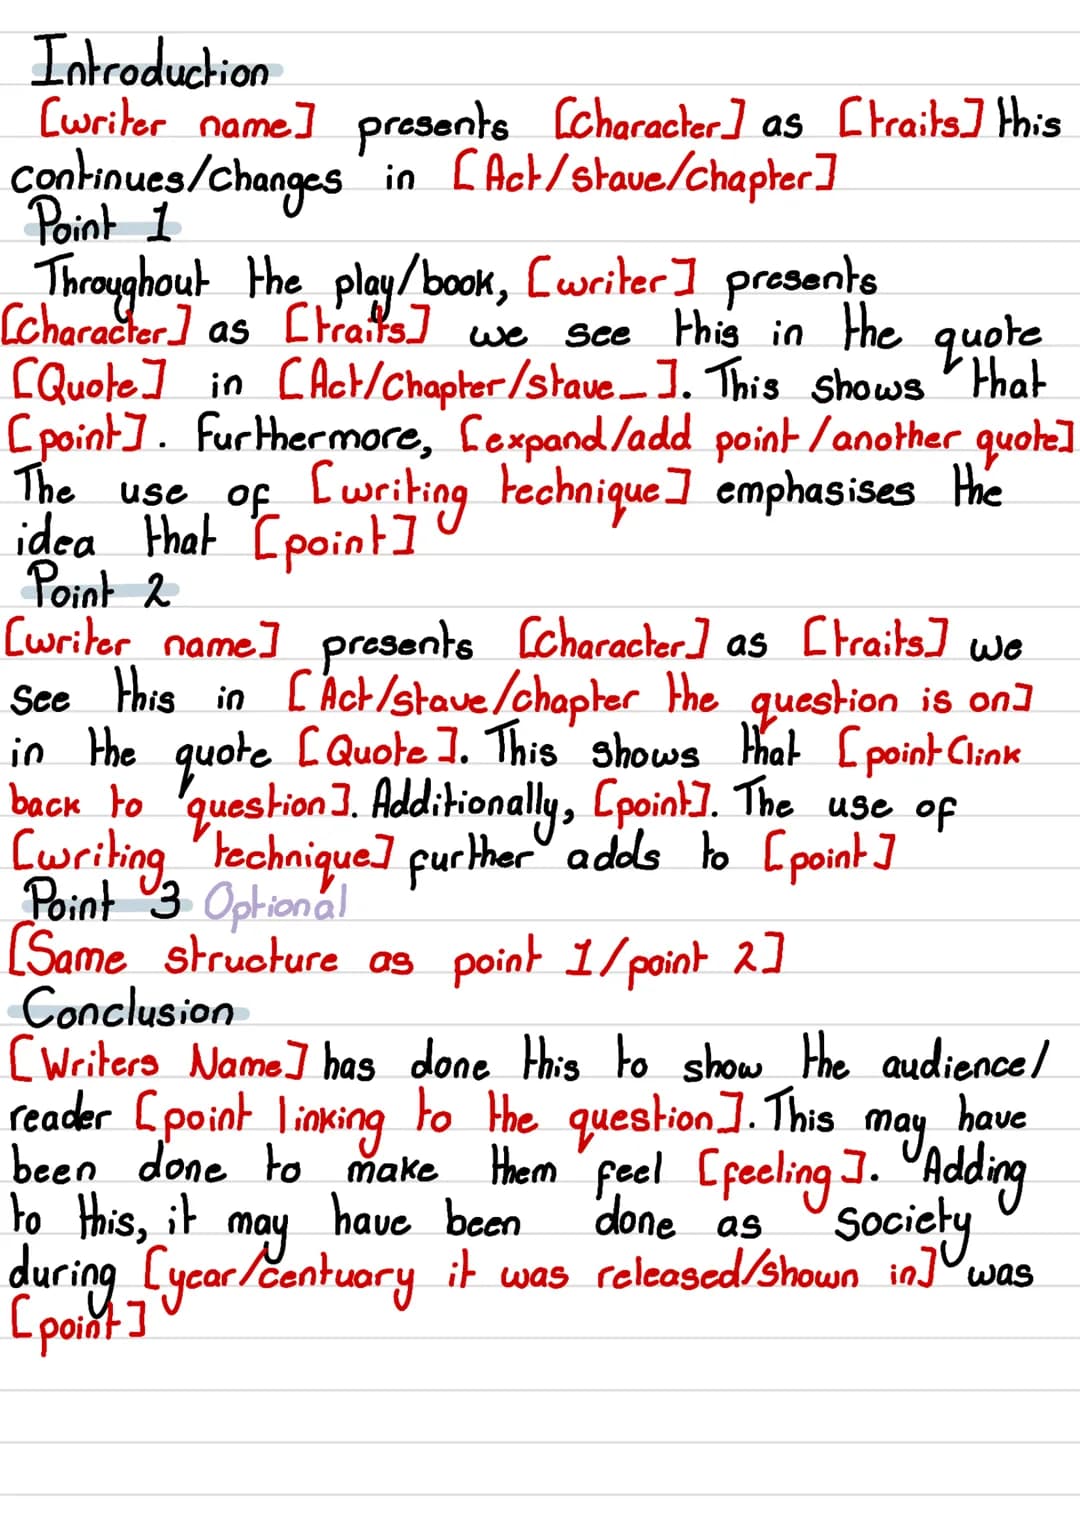 Introduction
[writer name] presents [character] as [traits] this
continues/changes in [Act/stave/chapter]
Point 1
Throughout the play/book, [writer] presents
[character] as [traits] we see this in the quote
[Quote] in [Act/Chapter/stave_]. This shows that
[point]. Furthermore, [expand/add point/another quote]
The use of [writing technique] emphasises the
idea that [point]
Point 2
[writer name] presents [character] as [traits] we
see this in [Act/stave/chapter the question is on]
in the quote [Quote]. This shows that [point(link
back to question]. Additionally, [point]. The use of
[writing technique] further adds to [point]
Point 3 Optional
[Same structure as point 1/point 2]
Conclusion
[Writers Name] has done this to show the audience/
reader [point linking to the question]. This may have
been done to make them feel [feeling]. Adding
to this, it may have been done as society
during [year/centuary it was released/shown in] was
[point]